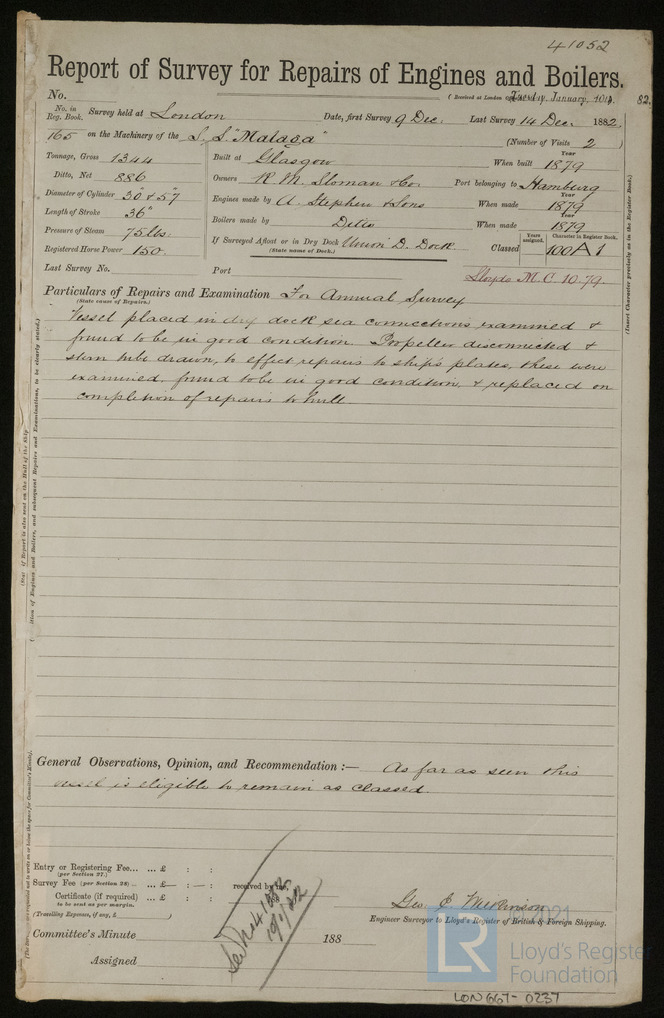 41052
Report of Survey for Repairs of Engines and Boilers.
No. (Received at London Tuesday, January, 10th, 82.
No. in Reg. Book. Survey held at London Date, first Survey 9 Dec. Last Survey 14 Dec 1882
165 on the Machinery of the S.S. "Malaga" (Number of Visits 2 )
Tonnage, Gross 1344 Built at Glasgow When built Year 1879
Ditto, Net 886 Owners R. M. Sloman & Co. Port belonging to Hamburg
Diameter of Cylinder 30" & 57" Engines made by A. Stephen & Sons When made Year 1879
Length of Stroke 36" Boilers made by Ditto When made Year 1879
Pressure of Steam 75 lbs. If Surveyed Afloat or in Dry Dock Union D. Dock Classed Years assigned. Character in Register Book. 100A1
(State name of Dock.)
Registered Horse Power 150
Last Survey No. Port Lloyds M.C. 10.79.
Particulars of Repairs and Examination For Annual Survey
(State cause of Repairs.)
Vessel placed in dry dock sea connections examined &
found to be in good condition. Propeller disconnected &
stern tube drawn, to effect repairs to ship's plates, these were
examined, found to be in good condition, & replaced on
completion of repairs to hull.
(Insert Character precisely as in the Register Book.)
General Observations, Opinion, and Recommendation :— As far as seen this
vessel is eligible to remain as classed
Entry or Registering Fee... ... £ : :
(per Section 27.)
Survey Fee (per Section 28) .. £ : — : received by me,
Certificate (if required) ... £ : :
to be sent as per margin.
(Travelling Expenses, if any, £ )
Engineer Surveyor to Lloyd's Register of British & Foreign Shipping.
Committee's Minute 188
Assigned
LR
2021
Lloyd's Register
Foundation
LON 667-0237